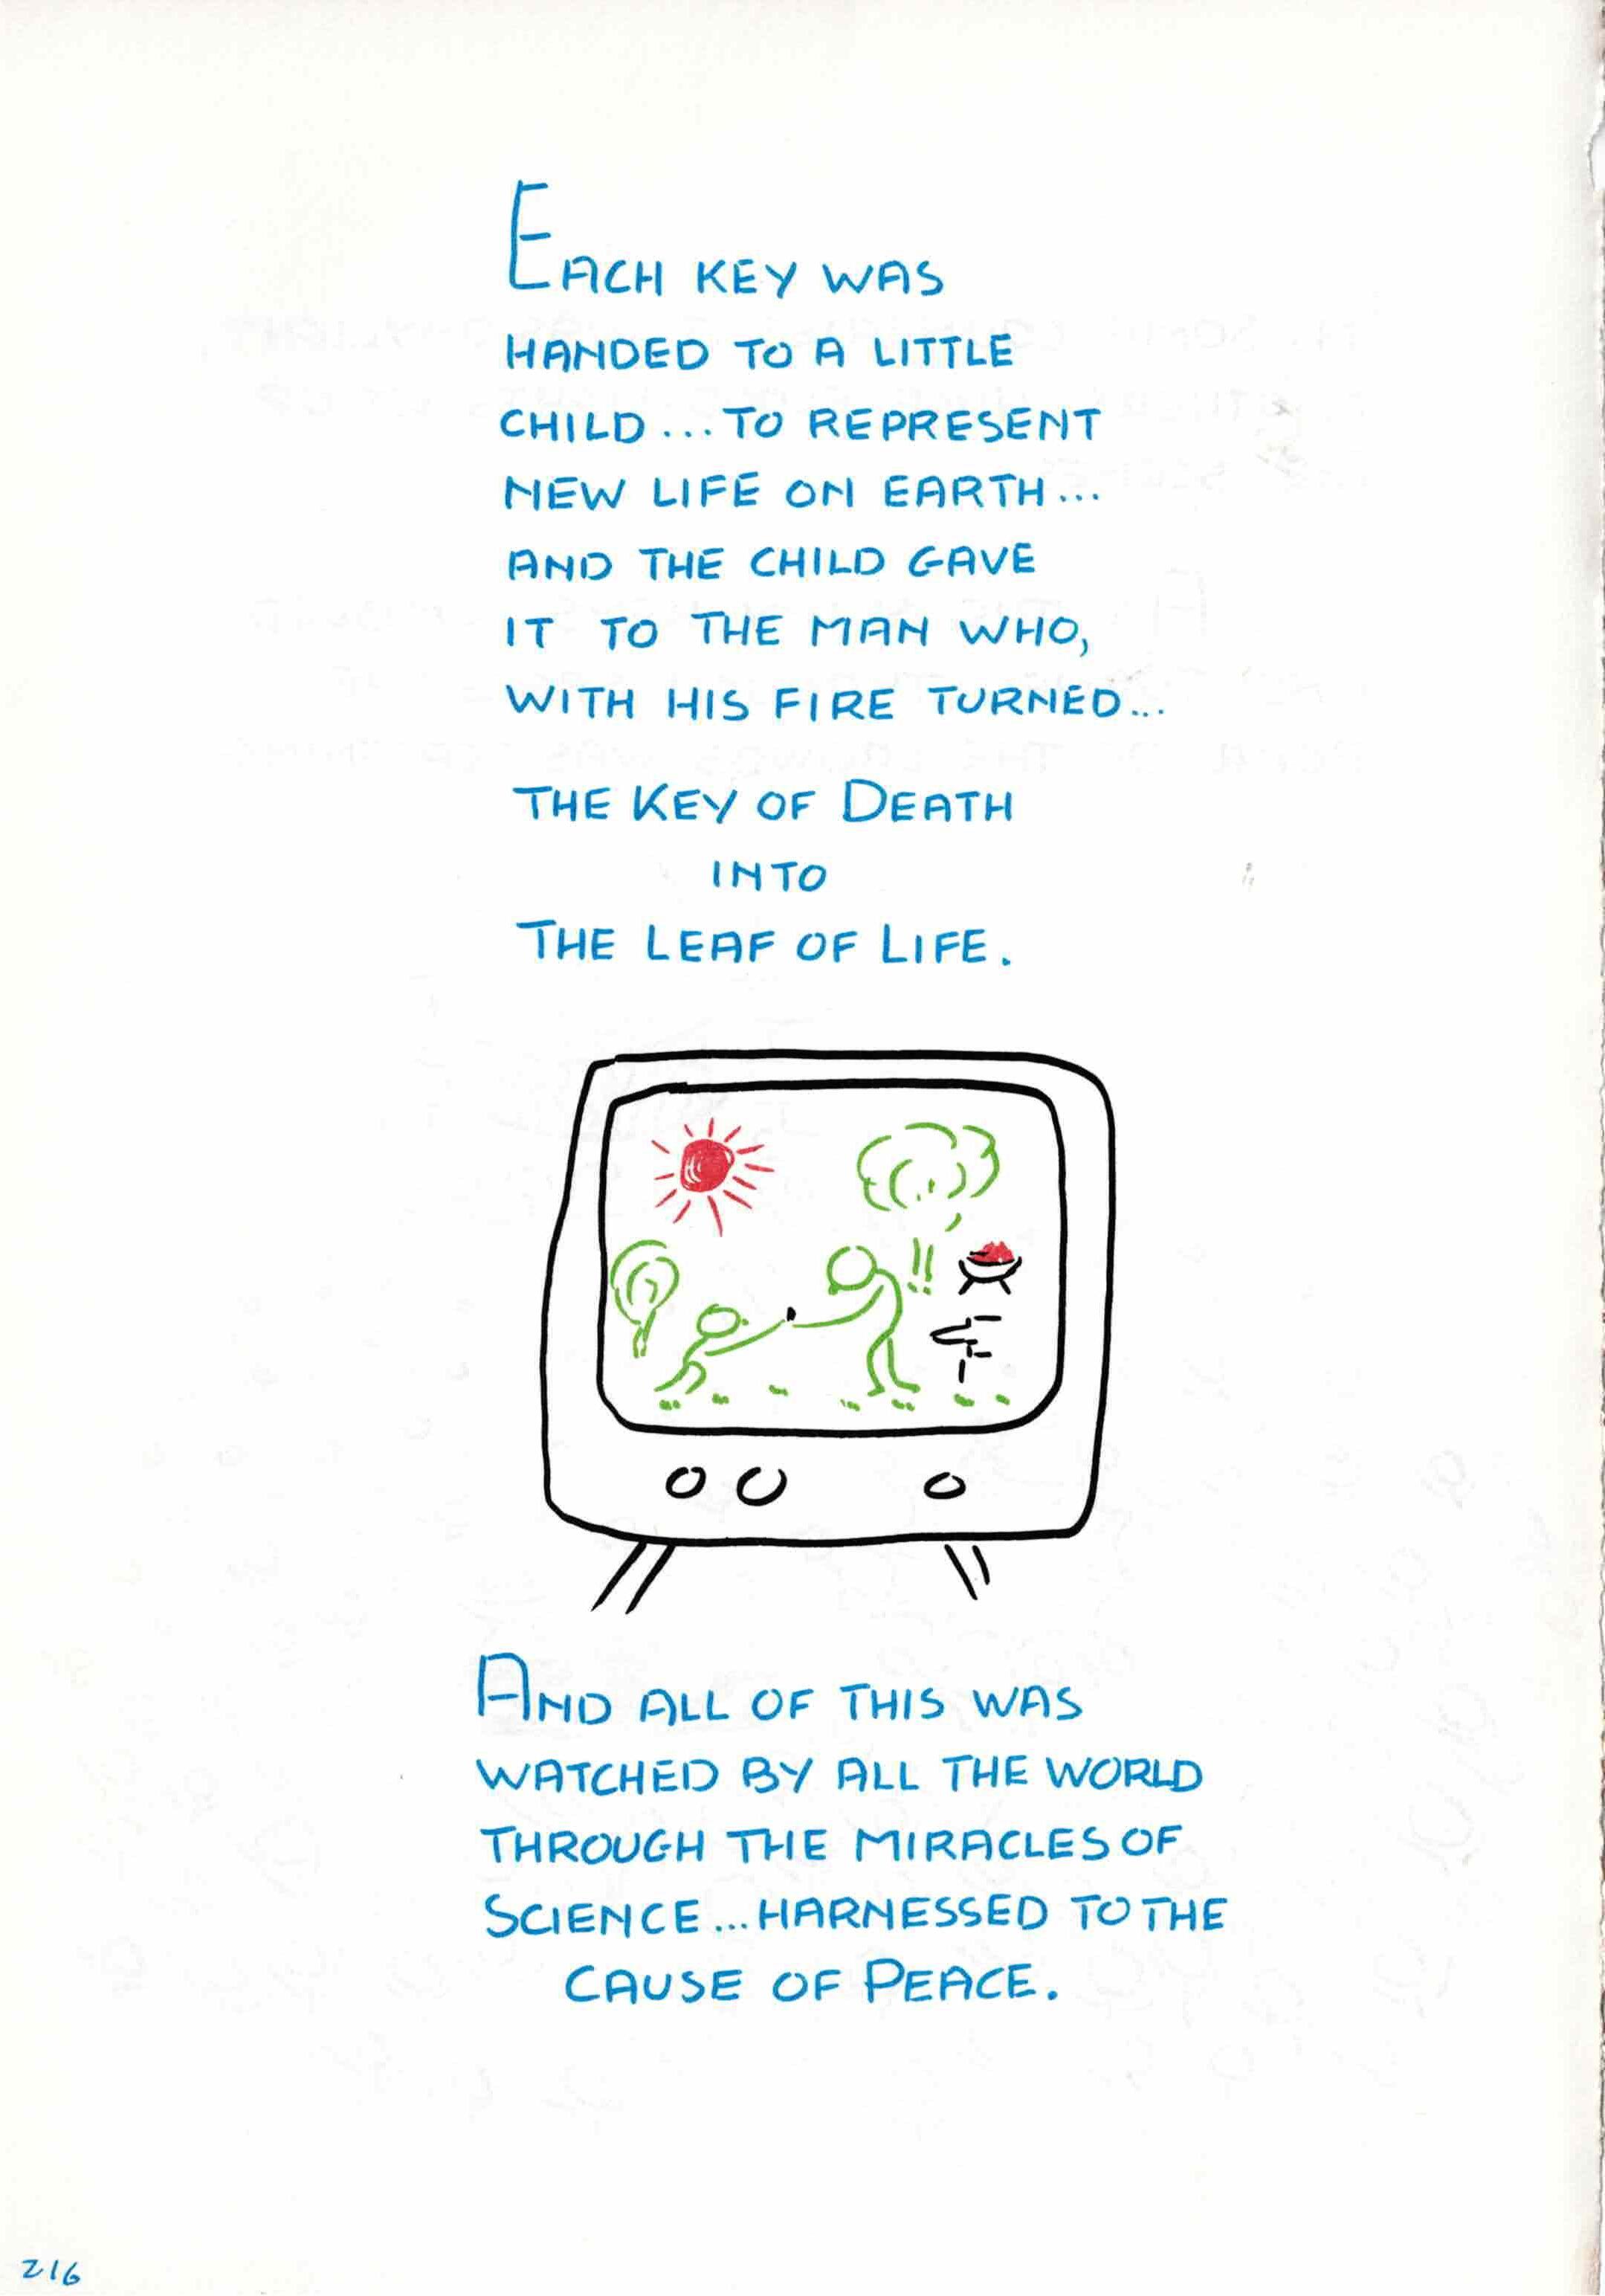 EACH KEY WAS
HANDED TO A LITTLE
CHILD...TO REPRESENT
NEW LIFE ON EARTH...
AND THE CHILD GAVE
IT TO THE MAN WHO,
WITH HIS FIRE TURNED...
THE KEY OF DEATH
INTO
THE LEAF OF LIFE.
!!
AND ALL OF THIS WAS
WATCHED BY ALL THE WORLD
THROUGH THE MIRACLES OF
SCIENCE...HARNESSED TO THE
CAUSE OF PEACE.
216